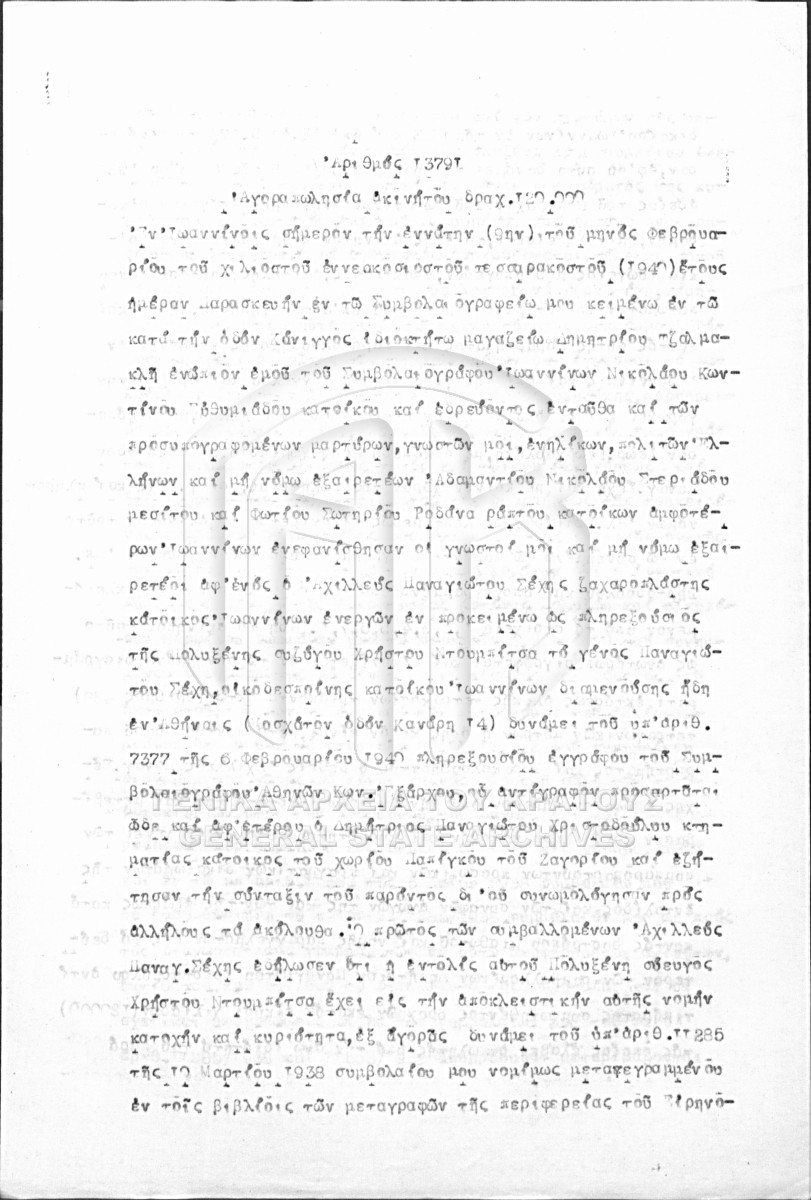 Ἀριθμός 13791
Ἀγοραπωλησία ἀκινήτου δραχ.120.000
Ἐν Ἰωαννίνοις σήμερον τήν ἐννάτην (9ην) τοῦ μηνός Φεβρουα-
ρίου τοῦ χιλιοστοῦ ἐννεακοσιοστοῦ τεσσαρακοστοῦ (1940) ἔτους
ἡμέραν Παρασκευήν ἐν τῶ Συμβολαιογραφείω μου κειμένω ἐν τῶ
κατά τήν ὁδόν Κάνιγγος ἰδιοκτήτω μαγαζείω Δημητρίου Τζαλμα-
κλῆ ἐνώπιον ἐμοῦ τοῦ Συμβολαιογράφου Ἰωαννίνων Νικολάου Κων-
τίνου Εὐθυμιάδου κατοίκου καί ἑδρεύοντος ἐνταῦθα καί τῶν
προσυπογραφομένων μαρτύρων,γνωστῶν μοι,ἐνηλίκων,πολιτῶν Ἑλ-
λήνων καί μή νόμω ἐξαιρετέων Ἀδαμαντίου Νικολάου Στεριάδου
μεσίτου καί Φωτίου Σωτηρίου Ροδάνα ράπτου κατοίκων ἀμφοτέ-
ρων Ἰωαννίνων ἐνεφανίσθησαν οἱ γνωστοί μοι καί μή νόμω ἐξαι-
ρετέοι ἀφ'ἑνός ὁ Ἀχιλλεύς Παναγιώτου Σέχης ζαχαροπλάστης
κάτοικος Ἰωαννίνων ἐνεργῶν ἐν προκειμένω ὡς πληρεξούσιος
τῆς Πολυξένης συζύγου Χρήστου Ντουμπίτσα τό γένος Παναγιώ-
του Σέχη,οἰκοδεσποίνης κατοίκου Ἰωαννίνων διαμενούσης ἤδη
ἐν Ἀθήναις (Μοσχάτον ὁδόν Κανάρη 14) δυνάμει τοῦ ὑπ'ἀριθ.
7377 τῆς 6 Φεβρουαρίου 1940 πληρεξουσίου ἐγγράφου τοῦ Συμ-
βολαιογράφου Ἀθηνῶν Κων. Ἐξάρχου οὗ ἀντίγραφον προσαρτᾶται
ὧδε καί ἀφ'ἑτέρου ὁ Δημήτριος Παναγιώτου Χριστοδούλου κτη-
ματίας κάτοικος τοῦ χωρίου Παπίγκου τοῦ Ζαγορίου καί ἐζή-
τησαν τήν σύνταξιν τοῦ παρόντος δι'οὗ συνωμολόγησαν πρός
ἀλλήλους τά ἀκόλουθα.Ὁ πρῶτος τῶν συμβαλλομένων Ἀχιλλεύς
Παναγ.Σέχης ἐδήλωσεν ὅτι ἡ ἐντολεύς αὐτοῦ Πολυξένη σύζυγος
Χρήστου Ντουμπίτσα ἔχει εἰς τήν ἀποκλειστικήν αὐτῆς νομήν
κατοχήν καί κυριότητα,ἐξ ἀγορᾶς δυνάμει τοῦ ὑπ'ἀριθ.11285
τῆς 10 Μαρτίου 1938 συμβολαίου μου νομίμως μεταγεγραμμένου
ἐν τοῖς βιβλίοις τῶν μεταγραφῶν τῆς περιφερείας τοῦ Εἰρηνο-
ΓΕΝΙΚΑ ΑΡΧΕΙΑ ΤΟΥ ΚΡΑΤΟΥΣ
GENERAL STATE ARCHIVES